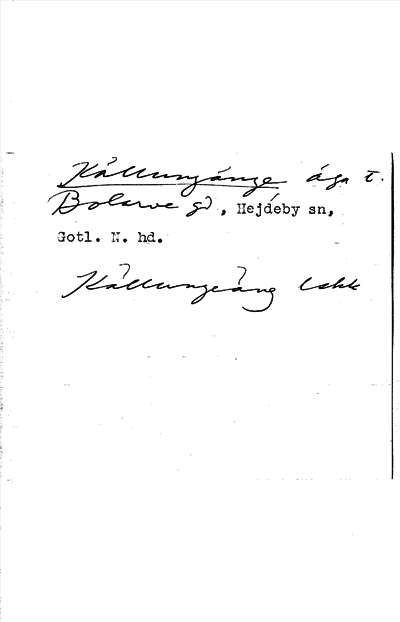 Källungänge äga t.
Bolarve gd, Hejdeby sn,
Gotl. N. hd.
Källungeäng Lskk